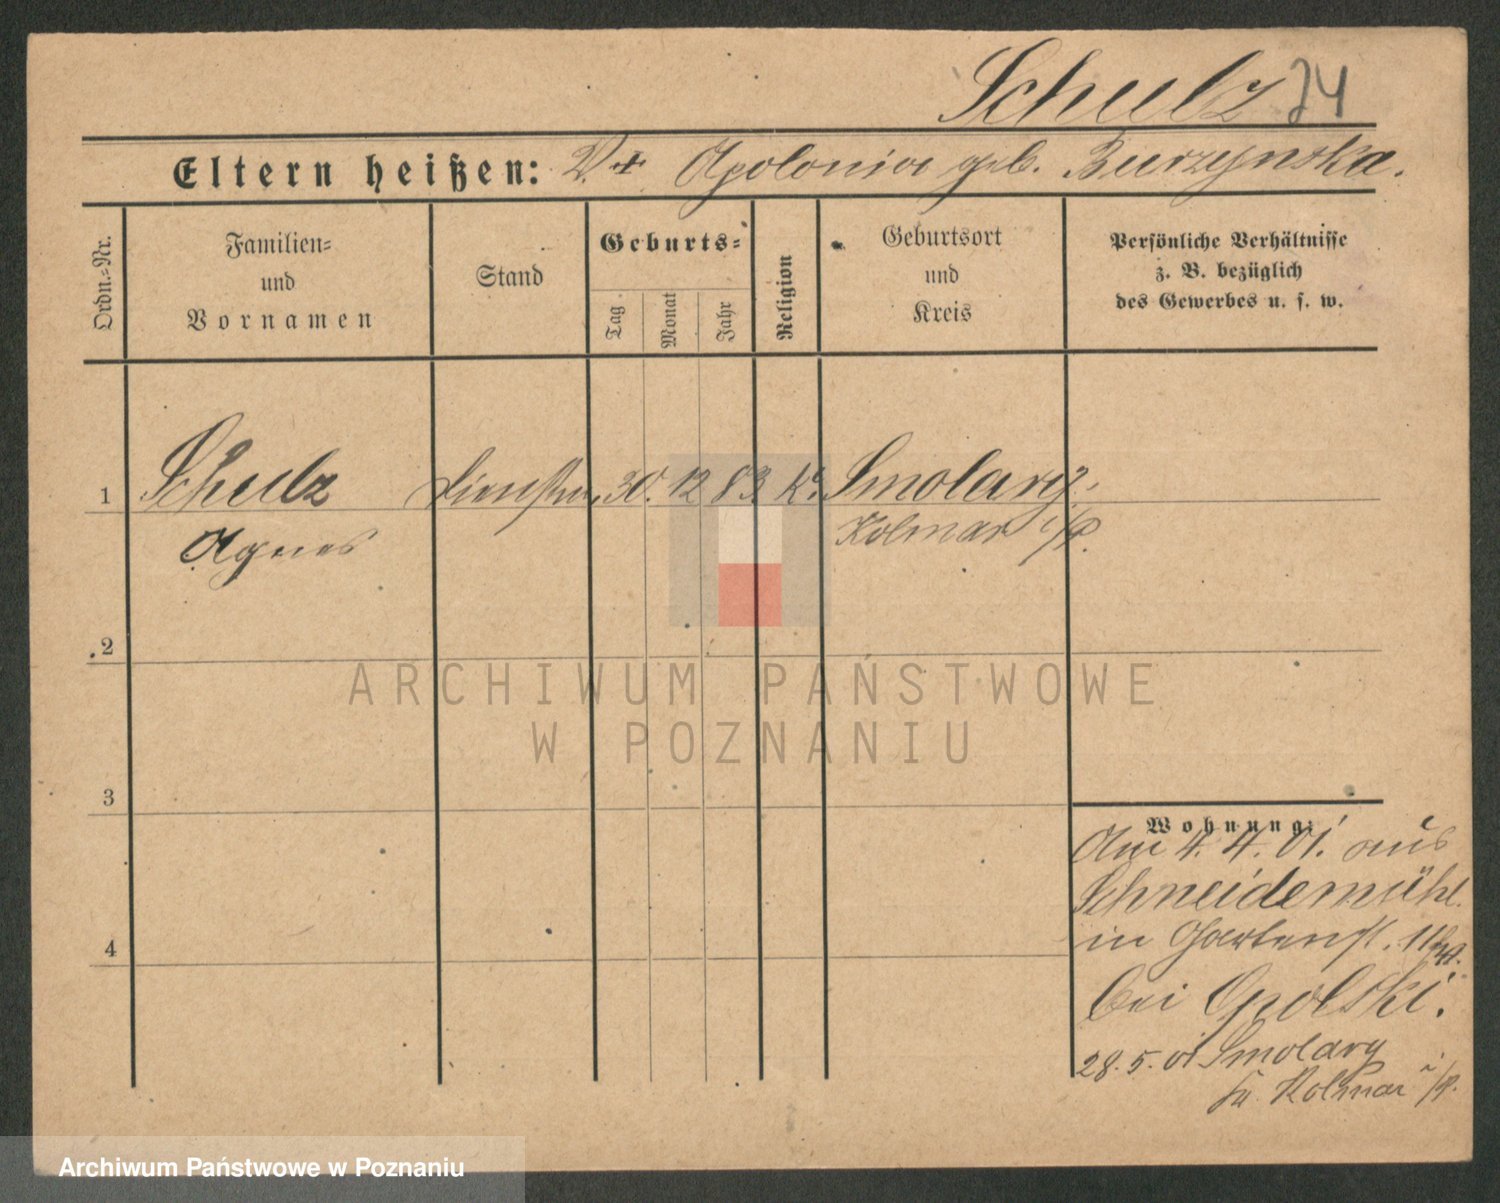 Schulz 74
Eltern heißen: V. + Apolonia geb. Burzynska.
Ordn.=Nr.
Familien=
und
Vornamen
Stand
Geburts=
Tag
Monat
Jahr
Religion
Geburtsort
und
Kreis
Persönliche Verhältnisse
z. B. bezüglich
des Gewerbes u. s. w.
1 Schulz 30. 12 83 K. Smolary
Agnes Kolmar i/P.
2
3
4
Wohnung:
Am 4. 4. 01. aus
Schneidemühl
in Gartenst.
bei Opolski.
28. 5. 01 Smolary
Kolmar i/P.
ARCHIWUM PAŃSTWOWE
W POZNANIU
Archiwum Państwowe w Poznaniu